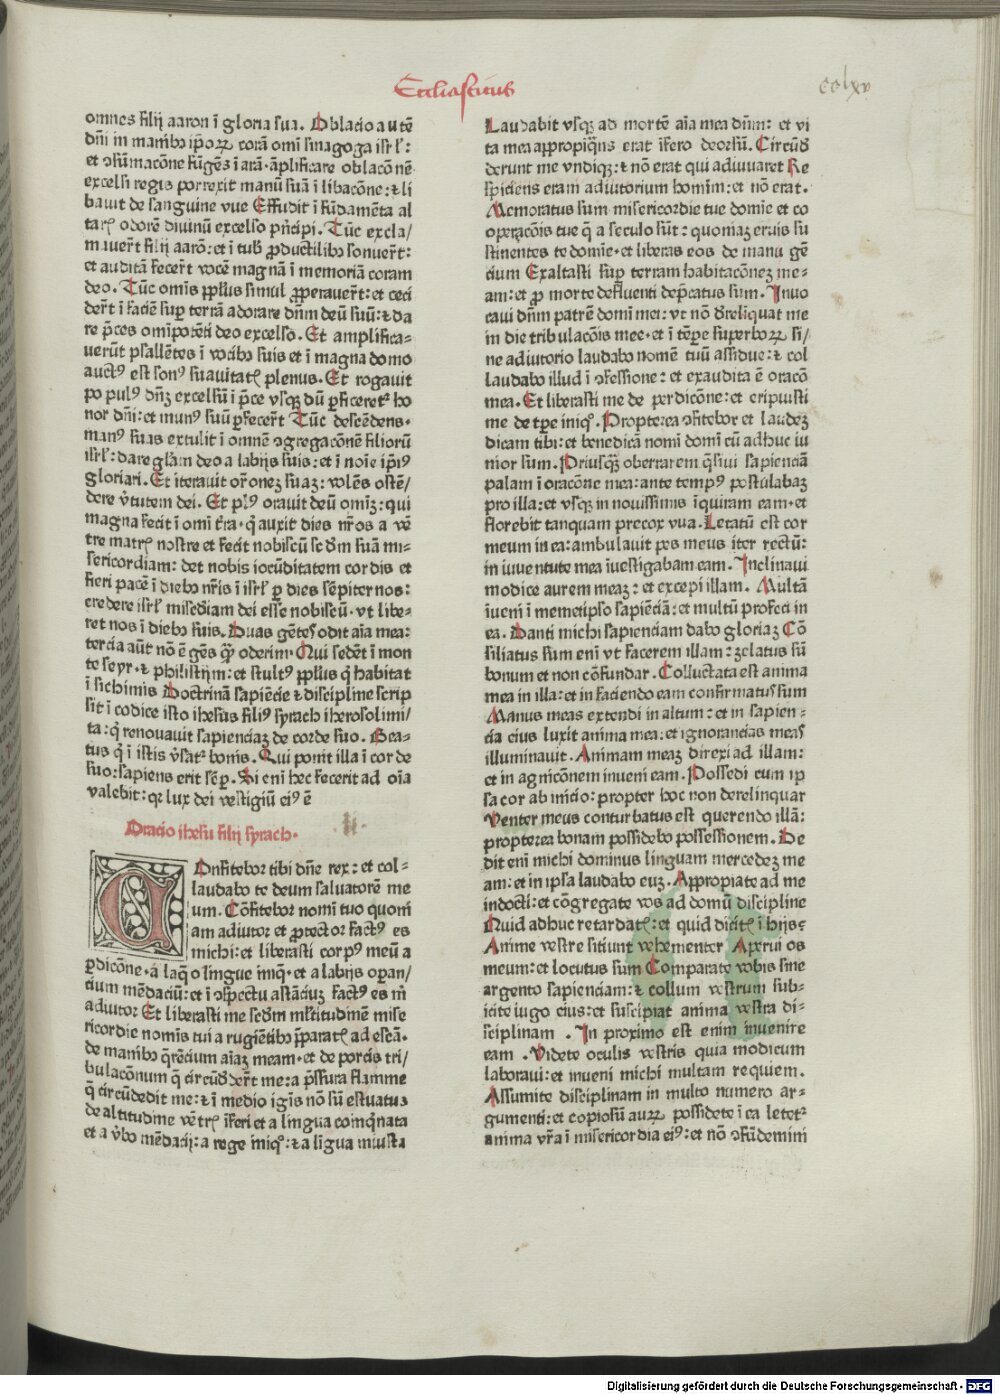 Ecclesiasticus
cclxv
omnes filij aaron ī gloria sua. Oblacio autē
dn̄i in manibꝰ ip̄oꝝ corā omī sinagoga isrl̄:
et ɔsūmacōne fūgēs ī arā. āplificare oblacōnē
excelsi regis porrexit manū suā ī libacōne: ⁊ li
bauit de sanguine vue Effudit ī fūdamēta al
taꝝ odorē divinū excelso pn̄cipi. Tūc excla/
mauer̄t filij aarō: et ī tubꝭ ꝓductilibꝰ sonuer̄t:
et auditā fecer̄t vocē magnā ī memoriā coram
deo. Tūc omīs pp̄lus simul ꝓperauer̄t: et ceci
der̄t ī faciē suꝑ terrā adorare dn̄m deū suū: ⁊ da
re p̄ces omīpotēti deo excelso. Et amplifica-
uerūt psallētes ī vocibꝰ suis et ī magna domo
auctꝰ est sonꝰ suauitatꝭ plenus. Et rogauit
populꝰ dn̄ꝫ excelsū ī p̄ce vsqꝫ dū ꝑficeretᷣ ho
nor dn̄i: et munꝰ suū ꝑfecer̄t Tūc descēdens.
manꝰ suas extulit ī omnē ɔgregacōnē filiorū
isrl̄: dare gl̄am deo a labijs suis: et ī noīe ip̄iꝰ
gloriari. Et iterauit or̄onez suaꝫ: volēs ostē/
dere v̓tutem dei. Et plꝰ orauit deū omīꝫ: qui
magna fecit ī omī t̄ra. q̄ auxit dies nr̄os a vē
tre matrꝭ nostre et fecit nobiscū scd̄m suā mi-
sericordiam: det nobis iocūditatem cordis et
fieri pacē ī diebꝰ nr̄is ī isrl̄ ꝑ dies sēpiternos:
credere isrl̄ mis̄ediam dei esse nobiscū. vt libe-
ret nos ī diebꝰ suis. Duas gētes odit aīa mea:
tercia aūt nō ē gēs quā̄ oderim. Qui sedēt ī mon
te seyr. ⁊ philistijm: et stultꝰ pp̄lus q̄ habitat
ī sichimis Doctrinā sapiēcie ⁊ discipline scrip
sit ī codice isto ihesūs filiꝰ syrach iherosolimi/
ta: q̄ renouauit sapienciaꝫ de corde suo. Bea-
tus q̄ ī istis v̓satᷣ bonis. Qui ponit illa ī corde
suo: sapiens erit sēꝑ. Si enī hec fecerit ad oīa
valebit: qꝛ lux dei vestigiū eiꝰ ē
Oracio ihesu filij syrach.
.li.
COnfitebor tibi dn̄e rex: et col-
laudabo te deum saluatorē me
um. Cōfitebor nomī tuo quoniā
am adiutor et ꝓtector factꝰ es
michi: et liberasti corpꝰ meū a
ꝑdicōne. a laq̄o lingue iniq̄. et a labijs opan̄/
cium mēdaciū: et ī ɔspectu astāciuꝫ factꝰ es m̄
adiutor Et liberasti me scd̄m ml̄titudinē mise
ricordie nomīs tui a rugiētibꝰ p̄paratꝭ ad escā.
de manibꝰ q̄rēcium aīaꝫ meam. et de portis tri/
bulacōnum q̄ circūdēder̄t me: a p̄ssura flamme
q̄ circūdedit me: ⁊ ī medio ignīs nō sū estuatus
de altitudine vētrꝭ īferi et a lingua coinqnata
et a v̓bo mēdacij: a rege iniqꝰ: ⁊ a līgua iniusta
Laudabit vsqꝫ ad mortē aīa mea dn̄m: et vi
ta mea appropiq̄ns erat īfero deorsū. Circūd
derunt me vndiqꝫ: ⁊ nō erat qui adiuuaret Re
spiciens eram adiutorium hominū: et nō erat.
Memoratus sum misericordie tue domīe et co
operacōis tue q̄ a seculo sūt: quoniaꝫ eruis su
stinentes te domīe. et liberas eos de manu gē
cium Exaltasti suꝑ terram habitacōneꝫ me-
am: et ꝓ morte defluenti dep̄catus sum. Inuo
caui dn̄m patrē domī mei: vt nō dreliquat me
in die tribulacōis mee. et ī tēꝑe superboꝝ si/
ne adiutorio laudabo nomē tuū assidue: ⁊ col
laudabo illud ī ɔfessione: et exaudita ē oracō
mea. Et liberasti me de perdicōne: et eripuisti
me de tꝑe iniqꝰ. Propterea ɔfitebor et laudeꝫ
dicam tibi: et benedicā nomī domī cū adhuc iu
nior sum. Priusqꝫ oberrarem q̄siui sapienciā
palam ī oracōne mea: ante tempꝰ postulabaꝫ
pro illa: et vsqꝫ in nouissimis īquiram eam. et
florebit tanquam precox vua. Letatū est cor
meum in ea: ambulauit pes meus iter rectū:
in iuuentute mea īuestigabam eam. Inclinaui
modice aurem meaꝫ: et excepi illam. Multā
īueni ī memetipso sapiēciā: et multū profeci in
ea. Danti michi sapienciam dabo gloriaꝫ Cō
siliatus sum enī vt facerem illam: zelatus sū
bonum et non cōfundar. Colluctata est anima
mea in illa: et in faciendo eam confirmatus sum
Manus meas extendi in altum: et in sapien-
cia eius luxit anima mea: et ignorancias meas
illuminauit. Animam meaꝫ direxi ad illam:
et in agnicōnem inueni eam. Possedi cum ip
sa cor ab inicio: propter hoc non derelinquar
Venter meus conturbatus est querendo illā:
propterea bonam possidebo possessionem. De
dit enī michi dominus linguam mercedeꝫ me
am: et in ipsa laudabo euꝫ. Appropiate ad me
indocti: et cōgregate vos ad domū discipline
Quid adhuc retardatꝭ: et quid dicitꝭ ī hijs?
Anime vestre sitiunt vehementer Aperui os
meum: et locutus sum Comparate vobis sine
argento sapienciam: ⁊ collum vestrum sub-
icite iugo eius: et suscipiat anima vestra di-
sciplinam . In proximo est enim inuenire
eam . Videte oculis vestris quia modicum
laboraui: et inueni michi multam requiem.
Assumite disciplinam in multo numero ar-
gumenti: et copiosū auꝝ possidete ī ea letetᷣ
anima vr̄a ī misericordia eiꝰ: et nō ɔfūdemini
Digitalisierung gefördert durch die Deutsche Forschungsgemeinschaft - DFG